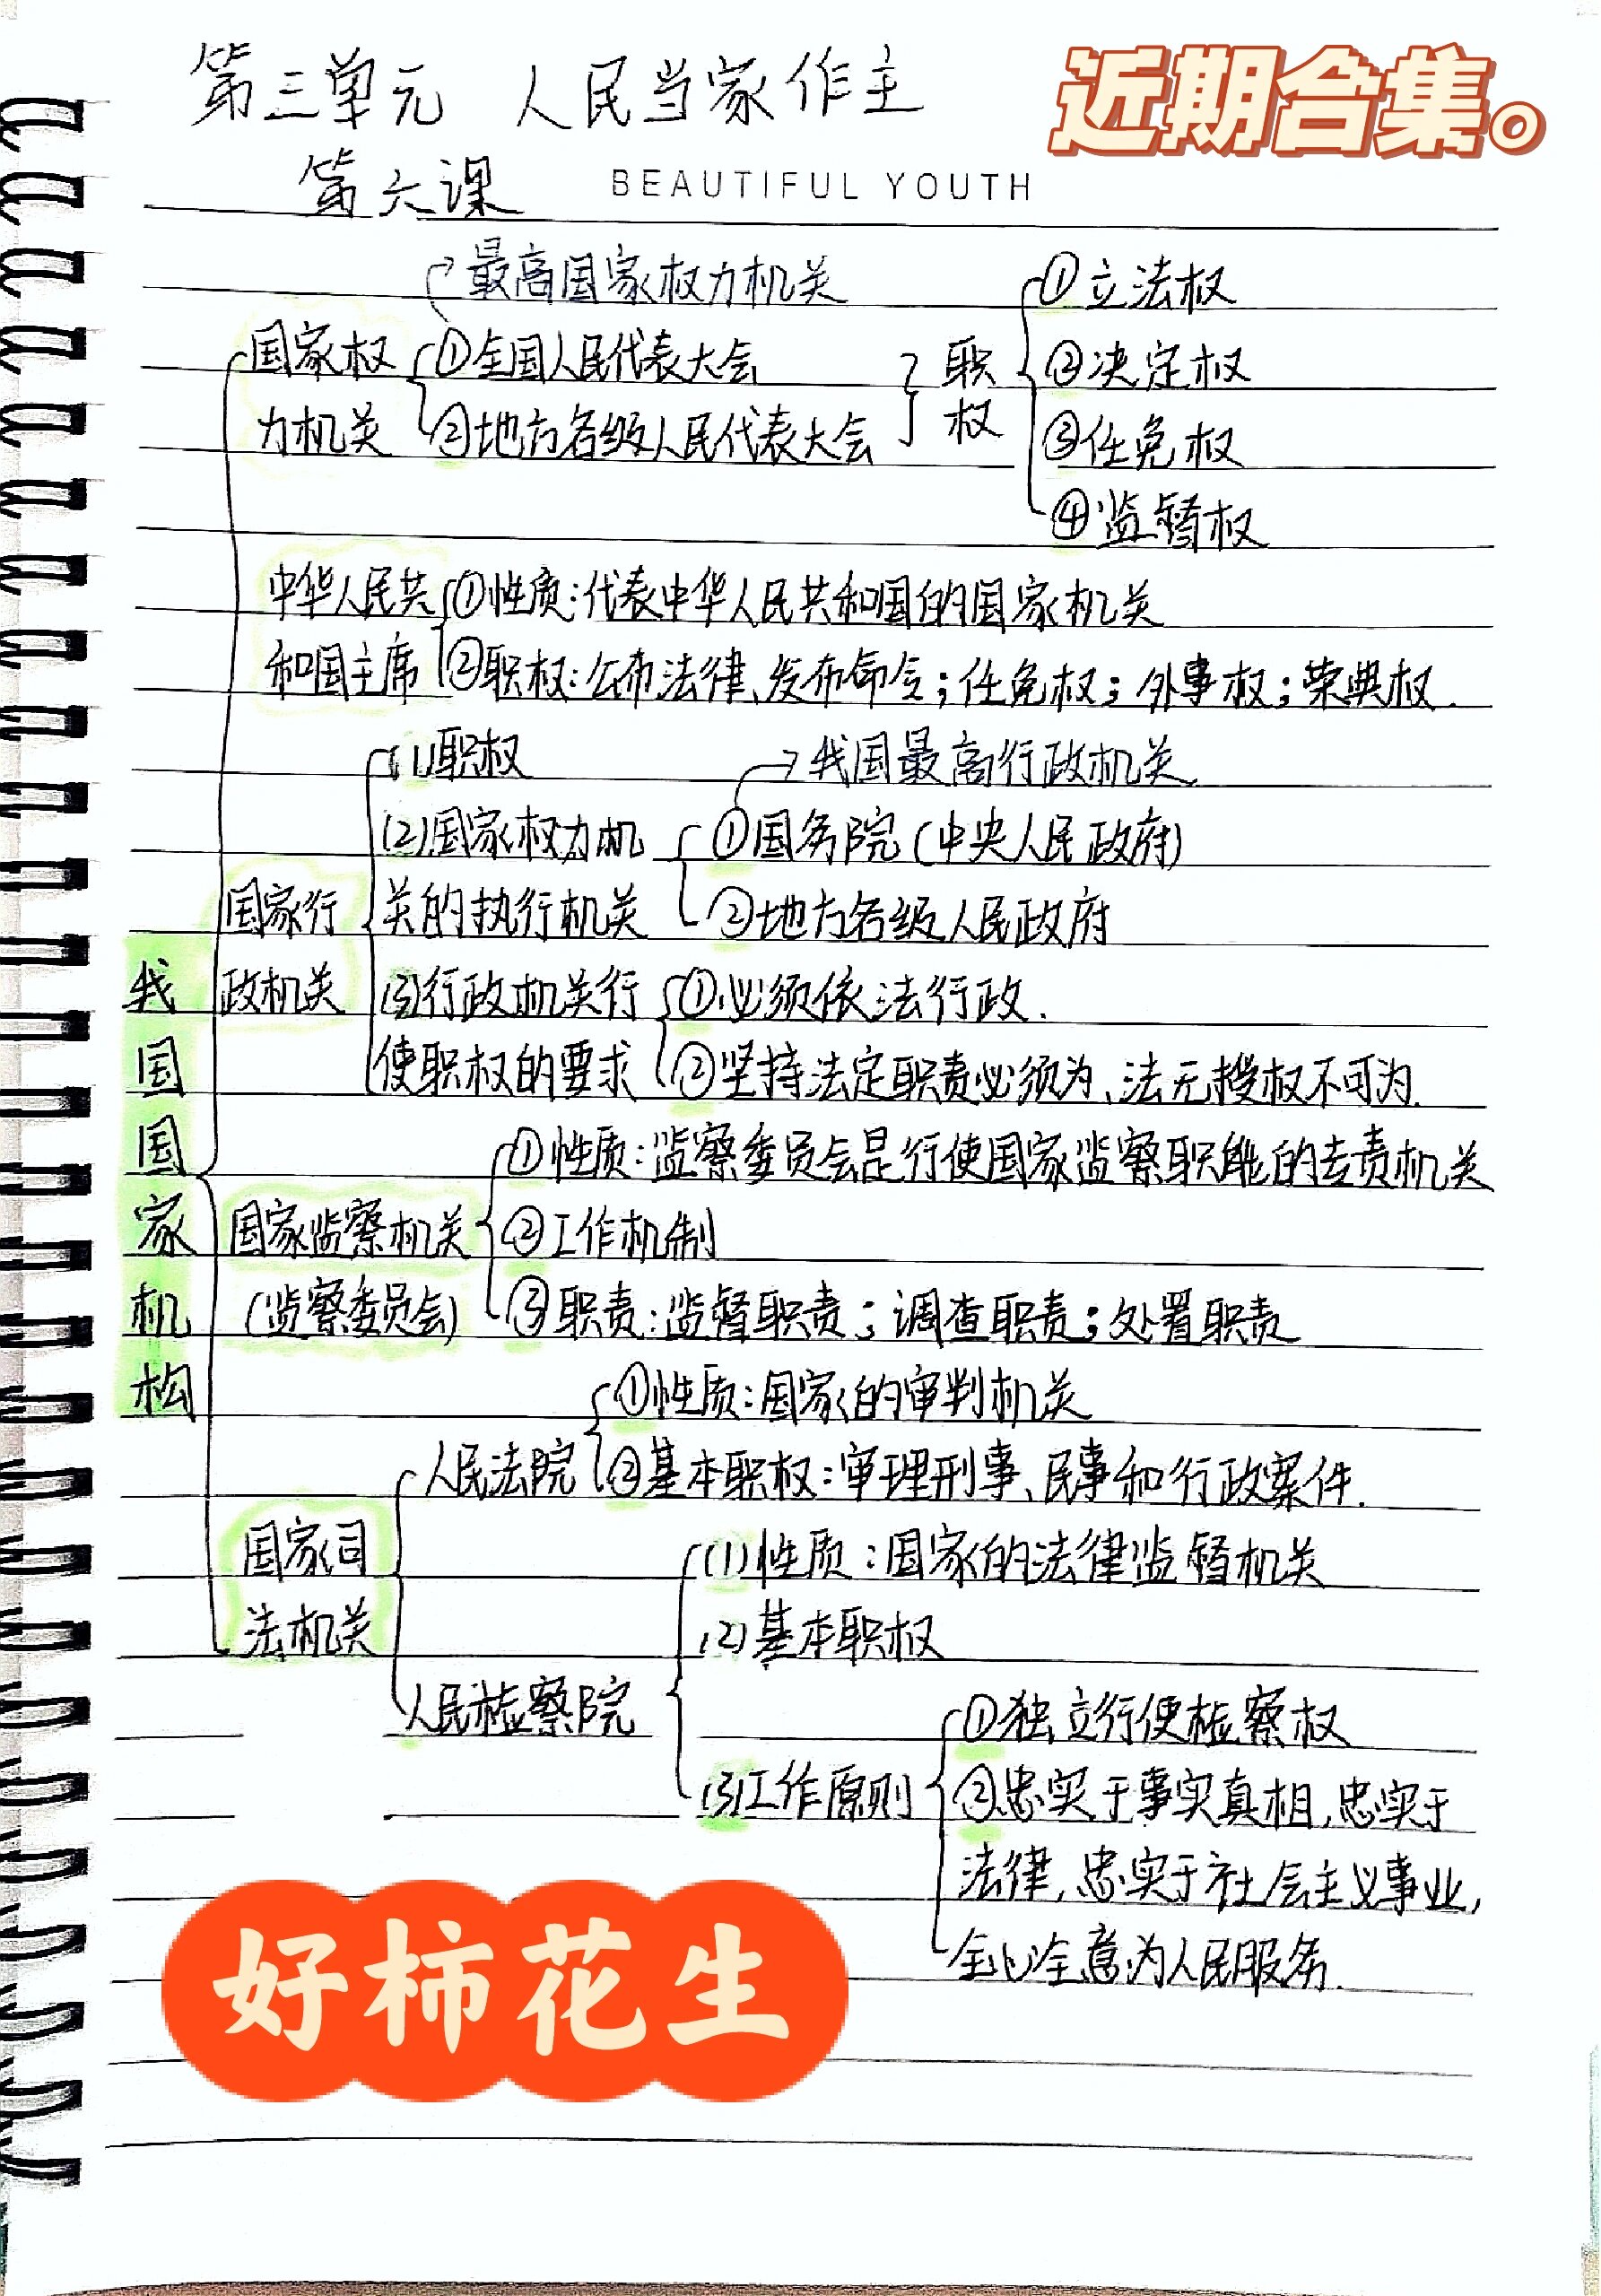 第三单元 人民当家作主
近期合集。
第六课
BEAUTIFUL YOUTH
我国国家机构
国家权力机关
最高国家权力机关
①全国人民代表大会
②地方各级人民代表大会
职权
①立法权
②决定权
③任免权
④监督权
中华人民共和国主席
①性质:代表中华人民共和国的国家机关
②职权:公布法律、发布命令;任免权;外事权;荣典权.
国家行政机关
(1)职权
(2)国家权力机关的执行机关
我国最高行政机关
①国务院(中央人民政府)
②地方各级人民政府
(3)行政机关行使职权的要求
①必须依法行政.
②坚持法定职责必须为、法无授权不可为.
国家监察机关
(监察委员会)
①性质:监察委员会是行使国家监察职能的专责机关
②工作机制
③职责:监督职责;调查职责;处置职责
国家司法机关
人民法院
①性质:国家的审判机关
②基本职权:审理刑事、民事和行政案件.
人民检察院
(1)性质:国家的法律监督机关
(2)基本职权
(3)工作原则
①独立行使检察权
②忠实于事实真相,忠实于
法律,忠实于社会主义事业,
全心全意为人民服务.
好柿花生